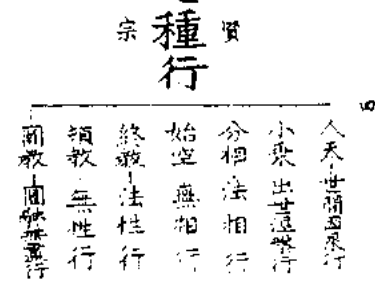 賢
種行
宗
四
人天—世間因果行
小乘 出世還滅行
分相 法相行
始空 無相行
終教—法性行
頓教—無性行
圓教—圓融無盡行